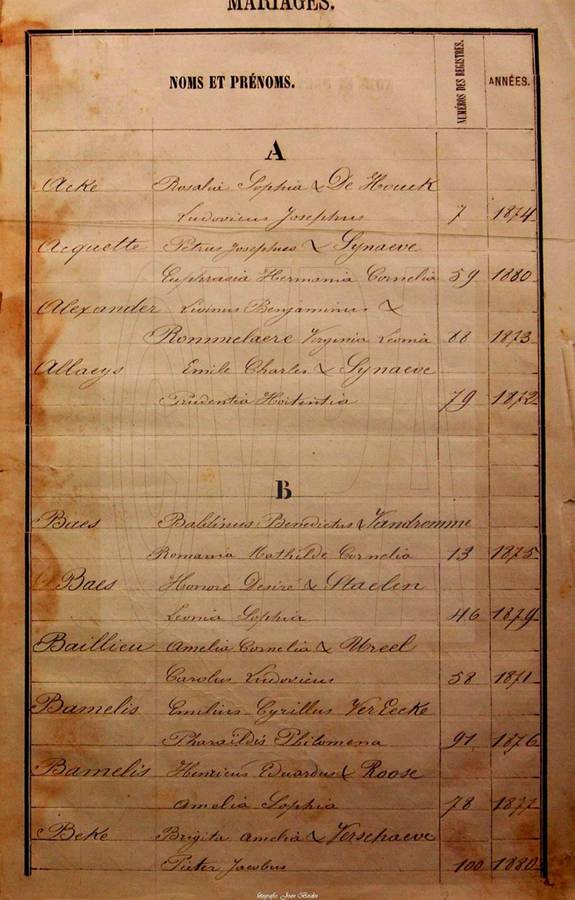 MARIAGES.
NOMS ET PRÉNOMS. NUMÉROS DES REGISTRES. ANNÉES.
A
Acke Rosalia Sophia & De Houck
Ludovicus Josephus 7 1874
Acquette Petrus Josephus & Synaeve
Euphrasia Hermania Cornelia 59 1880
Alexander Livinus Benjaminus &
Rommelaere Virginia Leonia 88 1873
Allaeys Emile Charles & Synaeve
Prudentia Hortentia 79 1872
B
Baes Benedictus & Vandromme
Romania Mathilde Cornelia 13 1875
Baes Honoré Desiré & Staelen
Leonia Sophia 46 1879
Baillieu Amelia Cornelia & Ureel
Carolus Ludovicus 58 1871
Bamelis Emilius Cyrillus VerEecke
Pharaïldis Philomena 91 1876
Bamelis Henricus Eduardus & Roose
Amelia Sophia 78
Beke Brigita Amelia & Verschaeve
Pieter Jacobus 100 1880